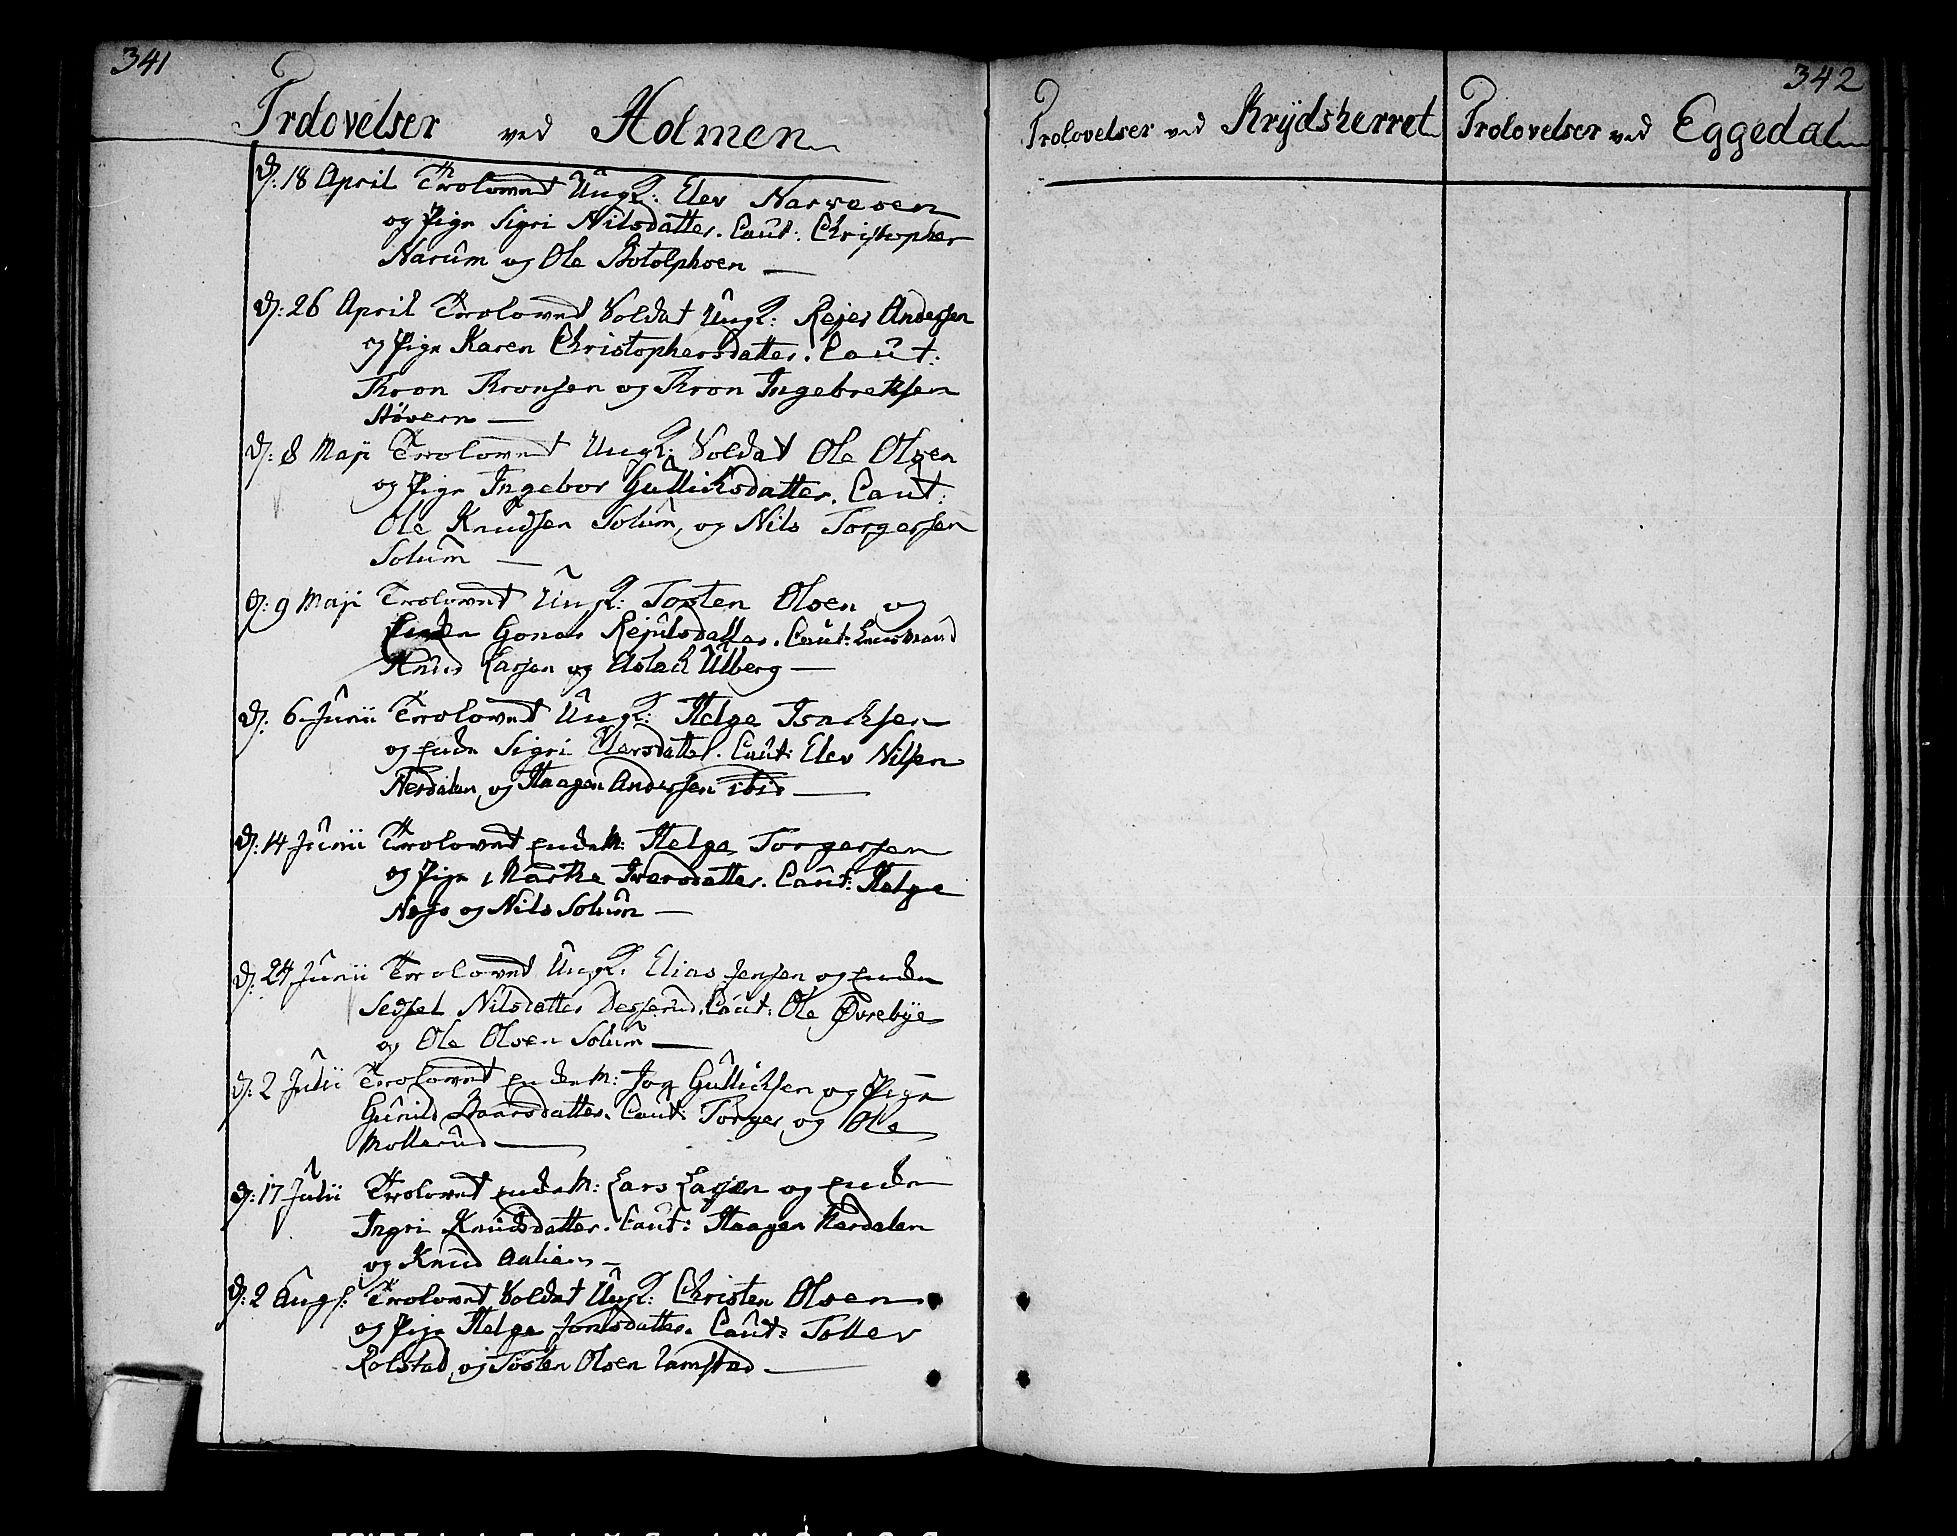 341
Trolovelser ved Holmen
D: 18 April Trolovet Ungk: Elev Narveoen
og Pige Sigri Nilsdatter. Caut: Christopher
Narum og Ole Botolphoen
D: 26 April Trolovet Soldat Ungk: Rejer Andersen
og Pige Karen Christophersdatter. Caut:
Thron Thronsen og Thron Ingebretsen
Høvern
D: 8 Maji Trolovet Ungk: Soldat Ole Olsen
og Pige Ingebor Gullichsdatter. Caut:
Ole Knudsen Solum, og Nils Torgersen
Solum
D: 9 Maji Trolovet Ungk: Tosten Olsen og
Enken Gonor Rejulsdatter. Caut:
Knud Larsen og Aslack Ulberg
D: 6 Junii Trolovet Ungk: Helge Isachsen
og Enke Sigri Elersdatter. Caut: Elev Nilsen
Nerdalen, og Haagen Andersen ibid
D: 14 Junii Trolovet Enkem: Helge Torgersen
og Pige Marthe Iversdatter. Caut: Helge
Næss og Nils Solum
D: 24 Junii Trolovet Ungk: Elias Jensen og Enken
Sedsel Nilsdatter Desserud. Caut: Ole Øvrebye
og Ole Olsen Solum
D: 2 Julii Trolovet Enkem: Joh Gullichsen og Pige
Gunild Baarsdatter. Caut: Torger og Ole
Mollerud
D: 17 Julii Trolovet Enkem: Lars Larsen og Enken
Ingri Knudsdatter. Caut: Haagen Nerdalen
og Knud Aalien
D: 2 Augs: Trolovet Soldat Ungk: Christen Olsen
og Pige Helge Jonsdatter. Caut: Tollev
Rolstad, og Tosten Olsen Ramstad
342
Trolovelser ved Krydsherret
Trolovelser ved Eggedal